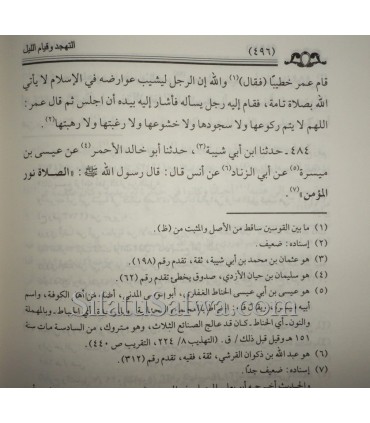 التهجد وقيام الليل
(٤٩٦)
قام عمر خطيبًا (فقال)(١) والله إن الرجل ليشيب عوارضه في الإسلام لا يأتي
الله بصلاة تامة، فقام إليه رجل يسأله فأشار إليه بيده أن اجلس ثم قال عمر:
اللهم لا يتم ركوعها ولا سجودها ولا خشوعها ولا رغبتها ولا رهبتها(٢).
٤٨٤ - حدثنا ابن أبي شيبة(٣)، حدثنا أبو خالد الأحمر(٤) عن عيسى بن
ميسرة(٥) عن أبي الزناد(٦) عن أنس قال: قال رسول الله ﷺ: «الصلاة نور
المؤمن»(٧).
(١) ما بين القوسين ساقط من الأصل والمثبت من (ظ).
(٢) إسناده: ضعيف.
(٣) هو عثمان بن محمد بن أبي شيبة، ثقة، تقدم رقم (١٩٨).
(٤) هو سليمان بن حيان الأزدي، صدوق يخطئ تقدم رقم (٦٢).
(٥) هو عيسى بن أبي عيسى الحناط الغفاري، أبو موسى المدني، أصله من الكوفة، واسم
والنون- أي الحناط. كان قد عالج الصنائع الثلاث، وهو متروك، من السادسة مات سنة
١٥١ هـ وقيل قبل ذلك / ق. (التهذيب ٨/ ٢٢٤، التقريب ص ٤٤٠).
(٦) هو عبد الله بن ذكوان القرشي، ثقة، فقيه، تقدم رقم (٣١٢).
(٧) إسناده: ضعيف جدًا.